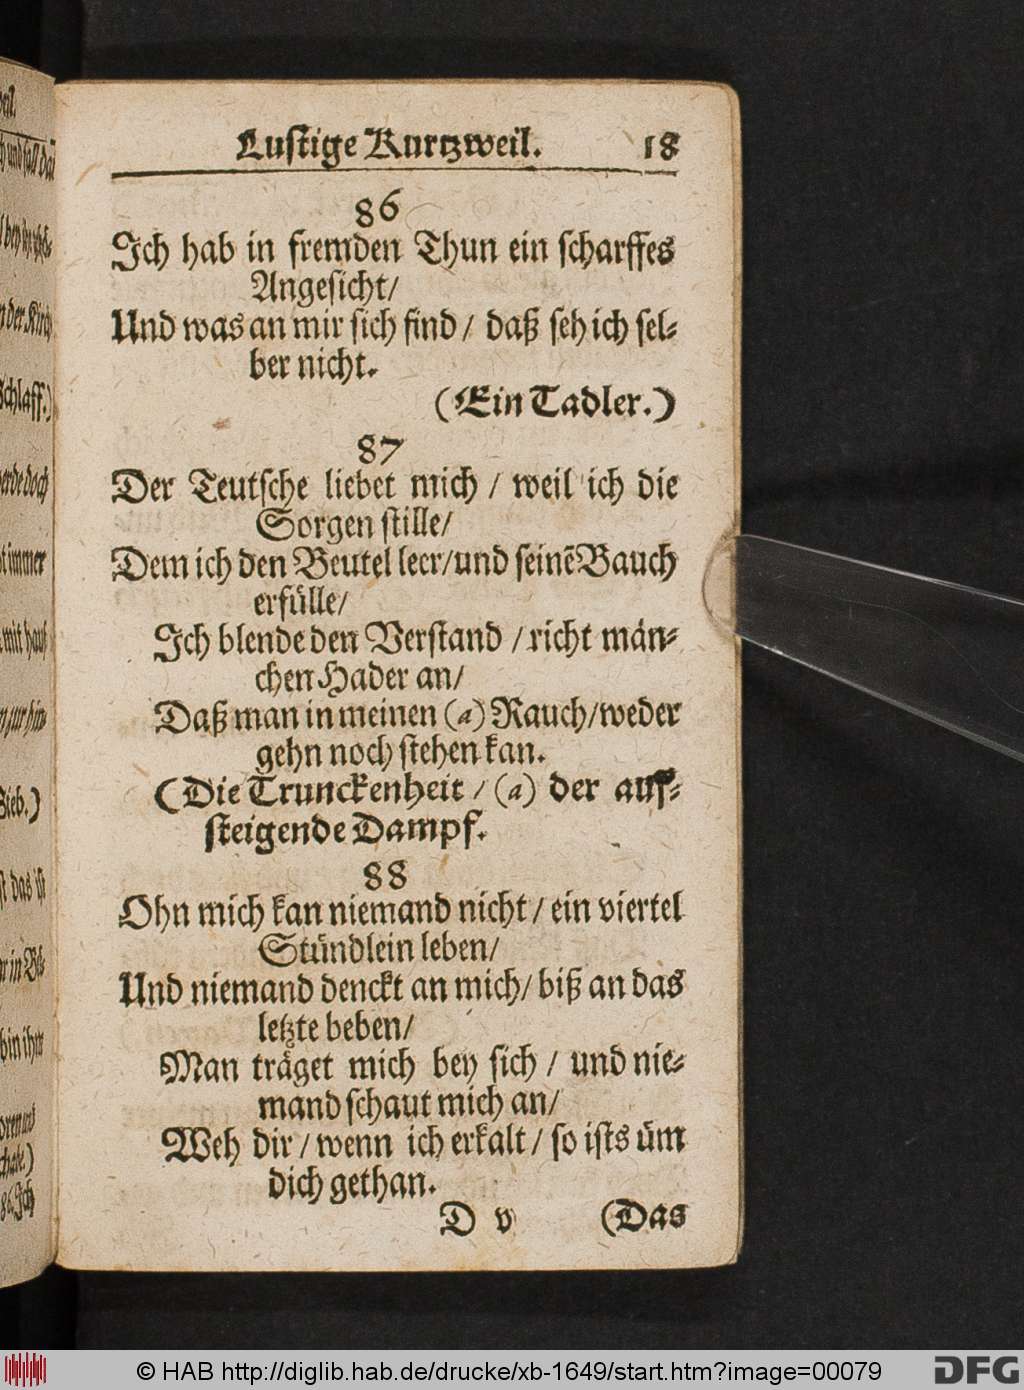 Lustige Kurtzweil. 18
86
Ich hab in fremden Thun ein scharffes
Angesicht/
Und was an mir sich find / daß seh ich sel-
ber nicht.
(Ein Tadler.)
87
Der Teutsche liebet mich / weil ich die
Sorgen stille/
Dem ich den Beutel leer/und seinẽ Bauch
erfülle/
Ich blende den Verstand / richt män-
chen Hader an/
Daß man in meinen (a) Rauch/weder
gehn noch stehen kan.
(Die Trunckenheit / (a) der auff-
steigende Dampf.
88
Ohn mich kan niemand nicht / ein viertel
Stündlein leben/
Und niemand denckt an mich/ biß an das
letzte beben/
Man träget mich bey sich / und nie-
mand schaut mich an/
Weh dir / wenn ich erkalt / so ists üm
dich gethan.
D v (Das
schlaff.)
immer
Dieb.)
86. Ich
© HAB http://diglib.hab.de/drucke/xb-1649/start.htm?image=00079
DFG